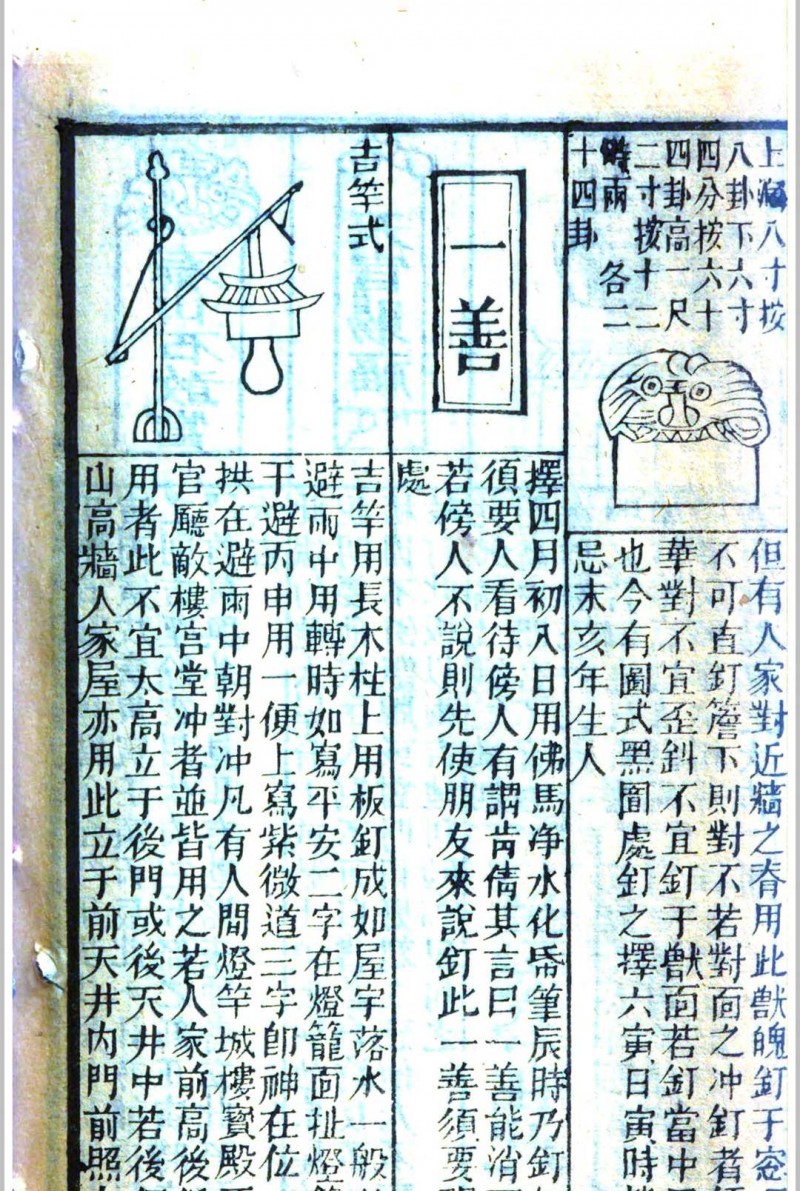 上濶八寸按
八卦下六寸
四分按六十
四卦高一尺
二寸按十二
時兩各二
十四卦
但有人家對近牆之脊用此獸
釘于
不可直釘簷下則對不若對面之冲釘者
華對不宜歪斜不宜釘于獸面若釘當中
也今有圖式黑圈處釘之擇六寅日寅時
忌未亥年生人
一善
擇四月初八日用佛馬净水化帋筆辰時乃釘
須要人看待傍人有謂肯倩其言曰一善能消
若傍人不說則先使朋友來說釘此一善須要
處
吉竿式
吉竿用長木柱上用板釘成如屋宇落水一般
避雨中用轉時如寫平安二字在燈籠面扯燈
干避雨中用一便上寫紫微道三字即神在位
拱在避雨中朝對冲凡有人間燈竿城樓寶殿
官廳敵樓宫堂冲者並皆用之若人家前高後
用者此不宜太高立于後門或後天井中若後
山高牆人家屋亦用此立于前天井内門前照